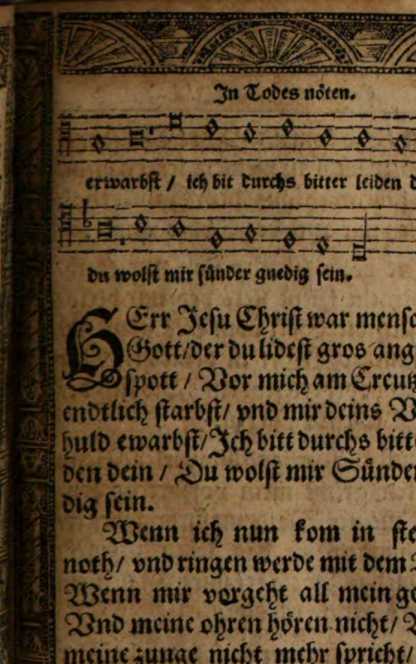 In Todes nöten.
erwarbst / ich bit durchs bitter leiden d
du wolst mir sünder gnedig sein.
HErr Jesu Christ war mensc
Gott/der du lidest gros ang
spott / Vor mich am Creutz
endtlich starbst/ vnd mir deins V
huld ewarbst/Ich bitt durchs bitt
den dein / Du wolst mir Sünde
dig sein.
Wenn ich nun kom in ste
noth/ vnd ringen werde mit dem
Wenn mir vorgeht all mein ge
Vnd meine ohren hören nicht/ V
meine zunge nicht mehr spricht/